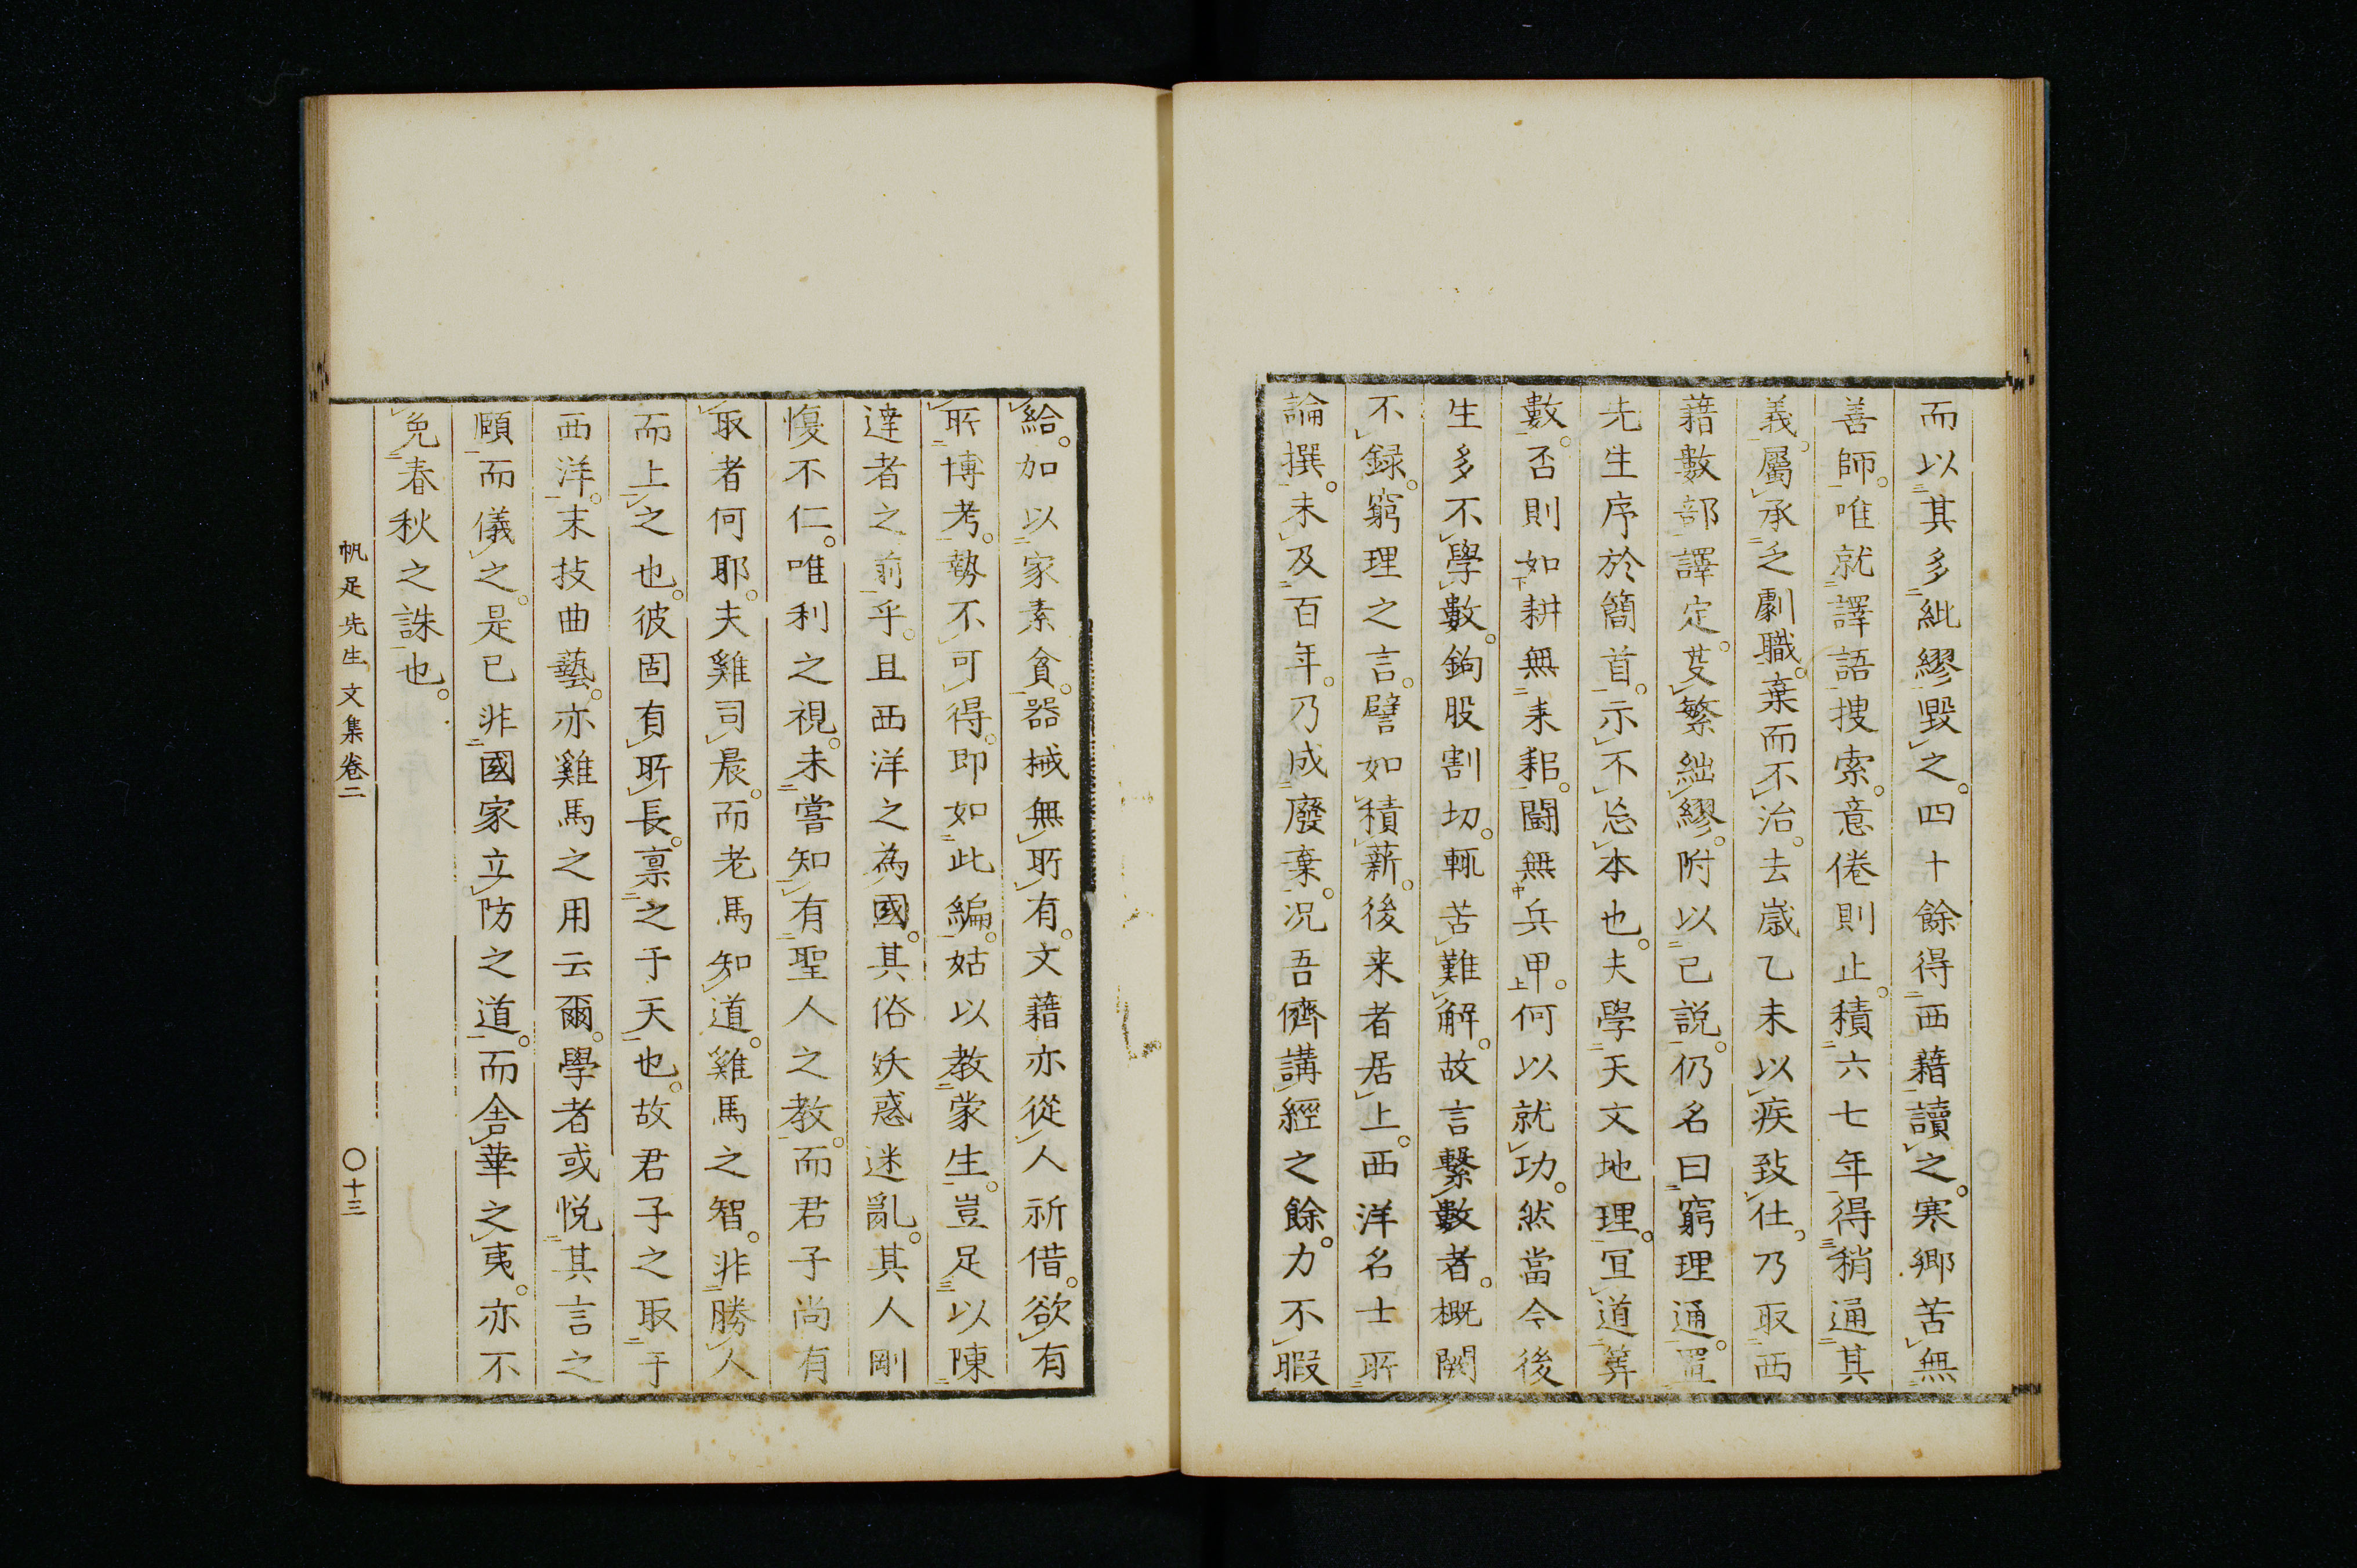 而以其多紕繆毀之。四十餘得西藉讀之。寒鄉苦無
善師。唯就譯語搜索。意倦則止。積六七年得稍通其
義。屬承乏劇職。棄而不治。去歲乙未以疾致仕。乃取西
藉數部譯定。芟繁絀繆。附以己説。仍名曰窮理通。置
先生序於簡首。示不忘本也。夫學天文地理。宜道筭
數。否則如耕無耒耜。鬪無兵甲。何以就功。然當今後
生多不學數。鉤股割切。輒苦難解。故言繫數者。概闕
不録。窮理之言。譬如積薪。後来者居上。西洋名士所
論撰。未及百年。乃成廢棄。况吾儕講經之餘。力不暇
給。加以家素貧。器械無所有。文藉亦從人祈借。欲有
所博考。勢不可得。即如此編。姑以教蒙生。豈足以陳
達者之前乎。且西洋之為國。其俗妖惑迷亂。其人剛
愎不仁。唯利之視。未嘗知有聖人之教。而君子尚有
取者何耶。夫雞司晨。而老馬知道。雞馬之智。非勝人
而上之也。彼固有所長。禀之于天也。故君子之取于
西洋。末技曲藝。亦雞馬之用云爾。學者或悦其言之
頤而儀之。是已非國家立防之道。而舎華之夷。亦不
免春秋之誅也。
帆足先生文集卷二
〇十三